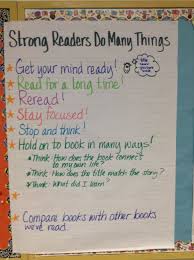 Strong Readers Do Many Things
Get your mind ready!
Read for a long time!
Reread!
Stay focused!
Stop and think!
Hold on to book in many ways!
*Think: How does the book connect
to my own life?
*Think: How does the title match the story?
*Think: What did I learn?
Compare books with other books
we've read.